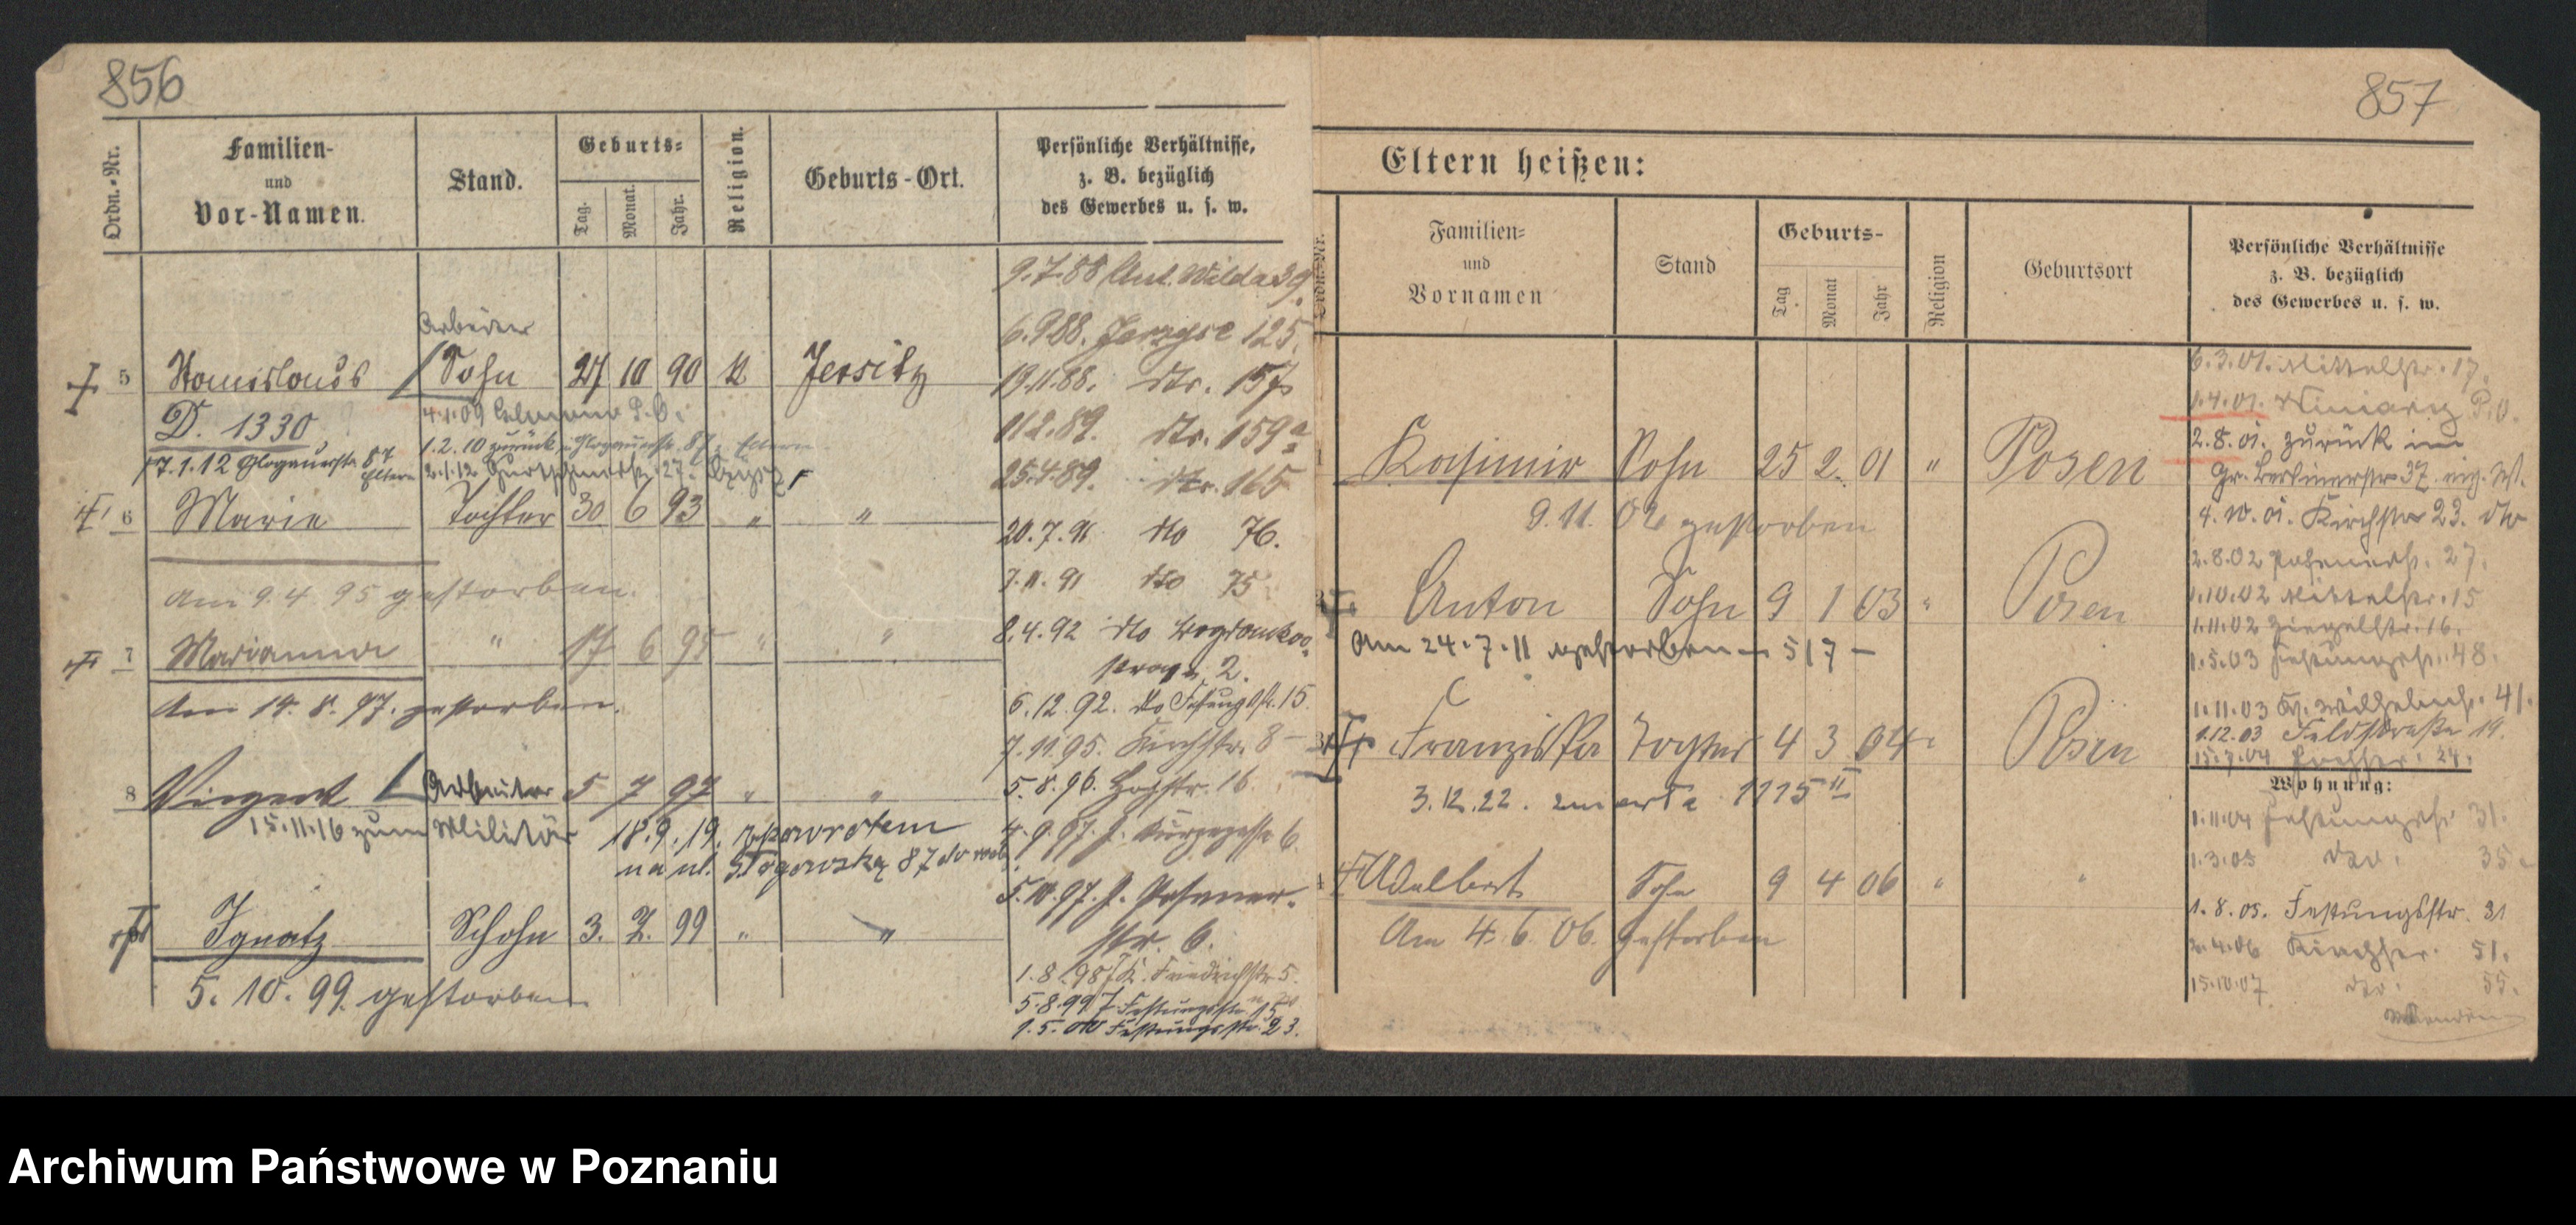 856
Ordn.-Nr.
Familien-
und
Vor-Namen.
Stand.
Geburts-
Tag.
Monat.
Jahr.
Religion.
Geburts-Ort.
Persönliche Verhältnisse,
z. B. bezüglich
des Gewerbes u. s. w.
Arbeiter
5 Stanislaus Sohn 27 10 90 K Jersitz
D. 1330
17.1.12 Glogauerstr. 87 Eltern
1.2.10 zurück Glogauerstr. 87 Eltern
6 Marie Tochter 30 6 93 " "
am 9.4.95 gestorben.
7 Marianna " 17 6 95 " "
Am 19.8.97. gestorben.
8 Vinzent Arbeiter 5 7 97 " "
15.11.16 zum Militär 18.9.19. z powrotem
na ul. Głogowską 87 do rodz.
Ignatz Schohn 3. 7. 99 " "
5. 10. 99. gestorben
9.7.88 Unt. Wilda 39.
6.9.88. Jerzyce 125.
19.11.88. dto. 157
11.2.89. dto. 159a
25.4.89. dto. 165
20.7.91 dto 76.
7.11.91 dto 75
8.4.92 dto
strasse 2.
6.12.92. do Festungsstr. 15.
7.11.95. Kirchstr. 8
5.8.96. 16
4.9.97. J. 6.
5.10.97. J. Posener-
str. 6.
1.8.98 K. Friedrichstr 5.
5.8.99 J. Festungsstr. 15
1.5.00 Festungsstr. 23.
857
Eltern heißen:
Ordn.-Nr.
Familien-
und
Vornamen
Stand
Geburts-
Tag
Monat
Jahr
Religion
Geburtsort
Persönliche Verhältnisse
z. B. bezüglich
des Gewerbes u. s. w.
Kasimir Sohn 25 2. 01 " Posen
9.11.02 gestorben
Anton Sohn 9 1 03 " Posen
Am 24.7.11 gestorben – 517 –
Franziska Tochter 4 3 04 " Posen
3.12.22. zmarła 1775 II
Adalbert Sohn 9 4 06 " "
Am 4.6.06. gestorben
6.3.01. Mittelstr. 17.
1.4.01. Winiary P.O.
2.8.01. zurück im
Gr. Berlinerstr 37.
4.10.01. Kirchstr 23. dto
2.8.02 Posenerstr. 27.
1.10.02 Mittelstr. 15
1.11.02 Ziegelstr. 16.
1.5.03 Festungsstr. 48.
1.11.03 Kr. Wilhelmstr. 41.
1.12.03 Feldstraße 19.
15.7.04 24.
Wohnung:
1.11.04 Festungsstr 31.
1.3.05 dto. 35
1.8.05. Festungsstr. 31
2.4.06 Kirchstr. 51.
15.10.07. dto. 55.
Archiwum Państwowe w Poznaniu